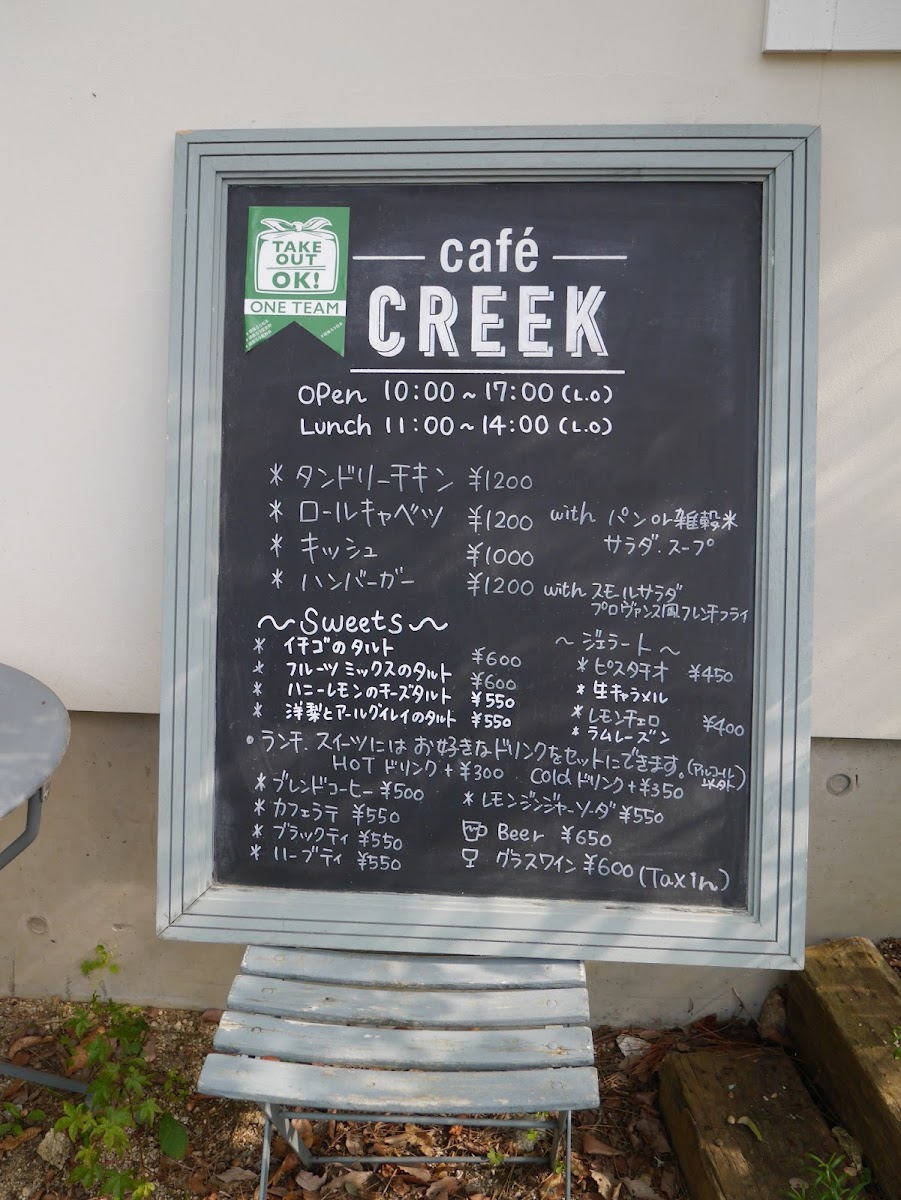 TAKE
OUT
OK!
ONE TEAM
café
CREEK
OPen 10:00~17:00 (L.O)
Lunch 11:00~14:00 (L.O)
* タンドリーチキン ¥1200
* ロールキャベツ ¥1200 with パン or 雑穀米
サラダ.スープ
* キッシュ ¥1000
* ハンバーガー ¥1200 with スモールサラダ
プロヴァンス風フレンチフライ
~Sweets~
* イチゴのタルト ¥600
* フルーツミックスのタルト ¥600
* ハニーレモンのチーズタルト ¥550
* 洋梨とアールグイレイのタルト ¥550
~ジェラート~
* ピスタチオ ¥450
* 生キャラメル
* レモンチェロ ¥400
* ラムレーズン
• ランチ.スイーツにはお好きなドリンクをセットにできます。(アルコール以外)
HOT ドリンク+¥300 Cold ドリンク+¥350
* ブレンドコーヒー ¥500
* カフェラテ ¥550
* ブラックティ ¥550
* ハーブティ ¥550
* レモンジンジャーソーダ ¥550
Beer ¥650
グラスワイン ¥600 (Tax in)